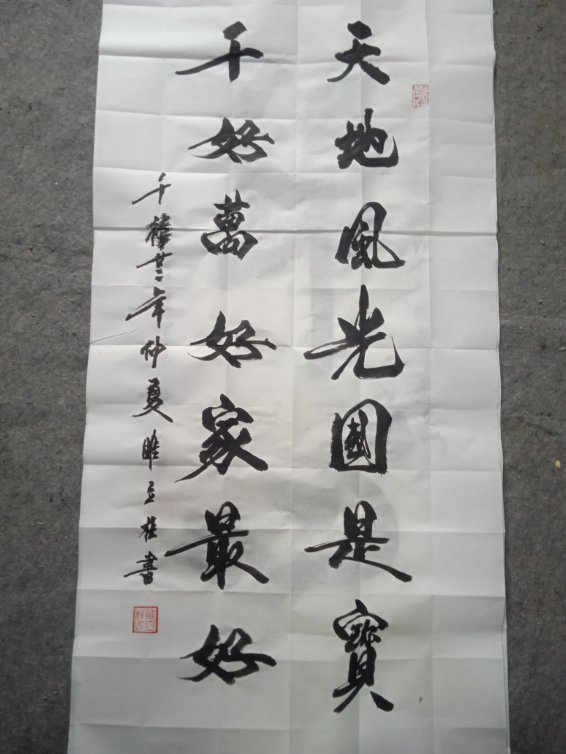 天地風光國是寶
千好萬好家最好
千禧廿二年仲夏 書